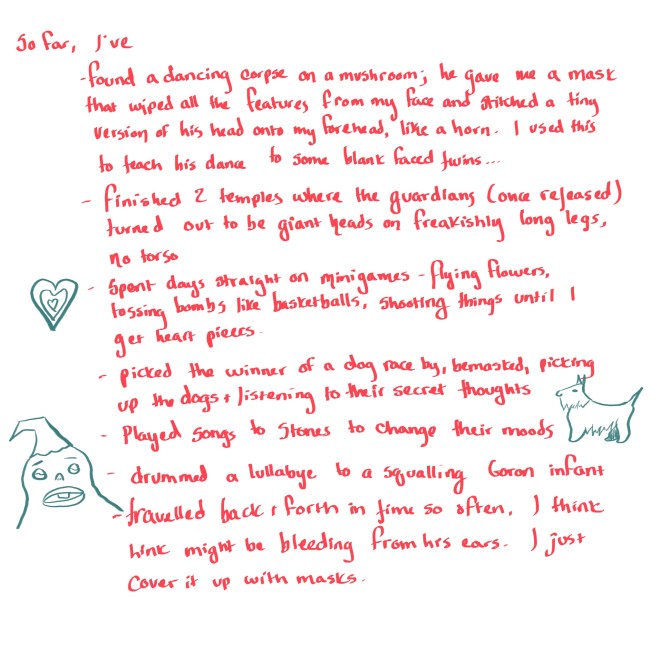 So far, I've
- found a dancing corpse on a mushroom; he gave me a mask
that wiped all the features from my face and stitched a tiny
version of his head onto my forehead, like a horn. I used this
to teach his dance to some blank faced twins...
- finished 2 temples where the guardians (once released)
turned out to be giant heads on freakishly long legs,
no torso
- Spent days straight on minigames - flying flowers,
tossing bombs like basketballs, shooting things until I
get heart pieces.
- picked the winner of a dog race by, bemasked, picking
up the dogs + listening to their secret thoughts
- Played songs to Stones to change their moods
- drummed a lullabye to a squalling Goron infant
- travelled back & forth in time so often, I think
Link might be bleeding from his ears. I just
cover it up with masks.